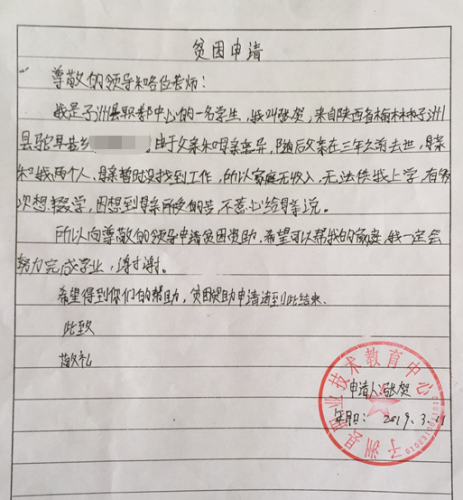 贫困申请
尊敬的领导和各位老师：
我是子洲县职教中心的一名学生，我叫张贺，来自陕西省榆林市子洲
县驼耳巷乡 由于父亲和母亲离异，随后父亲在三年之前去世，母亲
和我两个人，母亲暂时没找到工作，所以家庭无收入，无法供我上学，有多
次想辍学，因想到母亲所受的苦，不忍心给母亲说。
所以向尊敬的领导申请贫困资助，希望可以帮我的家庭，我一定会
努力完成学业，谢谢。
希望得到你们的帮助，贫困资助申请请到此结束。
此致
敬礼
申请人：张贺
年月日：2019.3.11
子洲县职业技术教育中心